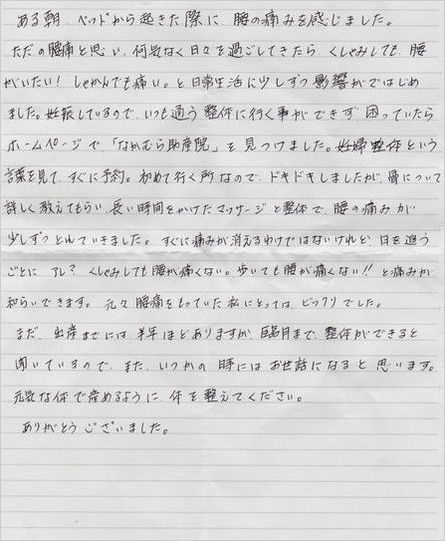 ある朝、ベッドから起きた際に 腰の痛みを感じました。
ただの腰痛と思い、何気なく日々を過ごしてきたら くしゃみしても、腰
がいたい! しゃがんでも痛い。と日常生活に少しずつ影響がではじめ
ました。妊娠しているので、いつも通う整体に行く事ができず 困っていたら
ホームページで、「なかむら助産院」を見つけました。妊婦整体という
言葉を見て、すぐに予約。初めて行く所なので、ドキドキしましたが、骨について
詳しく教えてもらい、長い時間をかけたマッサージと整体で、腰の痛みが
少しずつとれていきました。すぐに痛みが消えるわけではないけれど、日を追う
ごとに アレ? くしゃみしても腰が痛くない。歩いても腰が痛くない!! と痛みが
和らいできます。元々腰痛をもっていた私にとっては、ビックリでした。
まだ、出産までには半年ほどありますが、臨月まで、整体ができると
聞いているので、また、いつかの時にはお世話になると思います。
元気な体で産めるように、体を整えてください。
ありがとうございました。